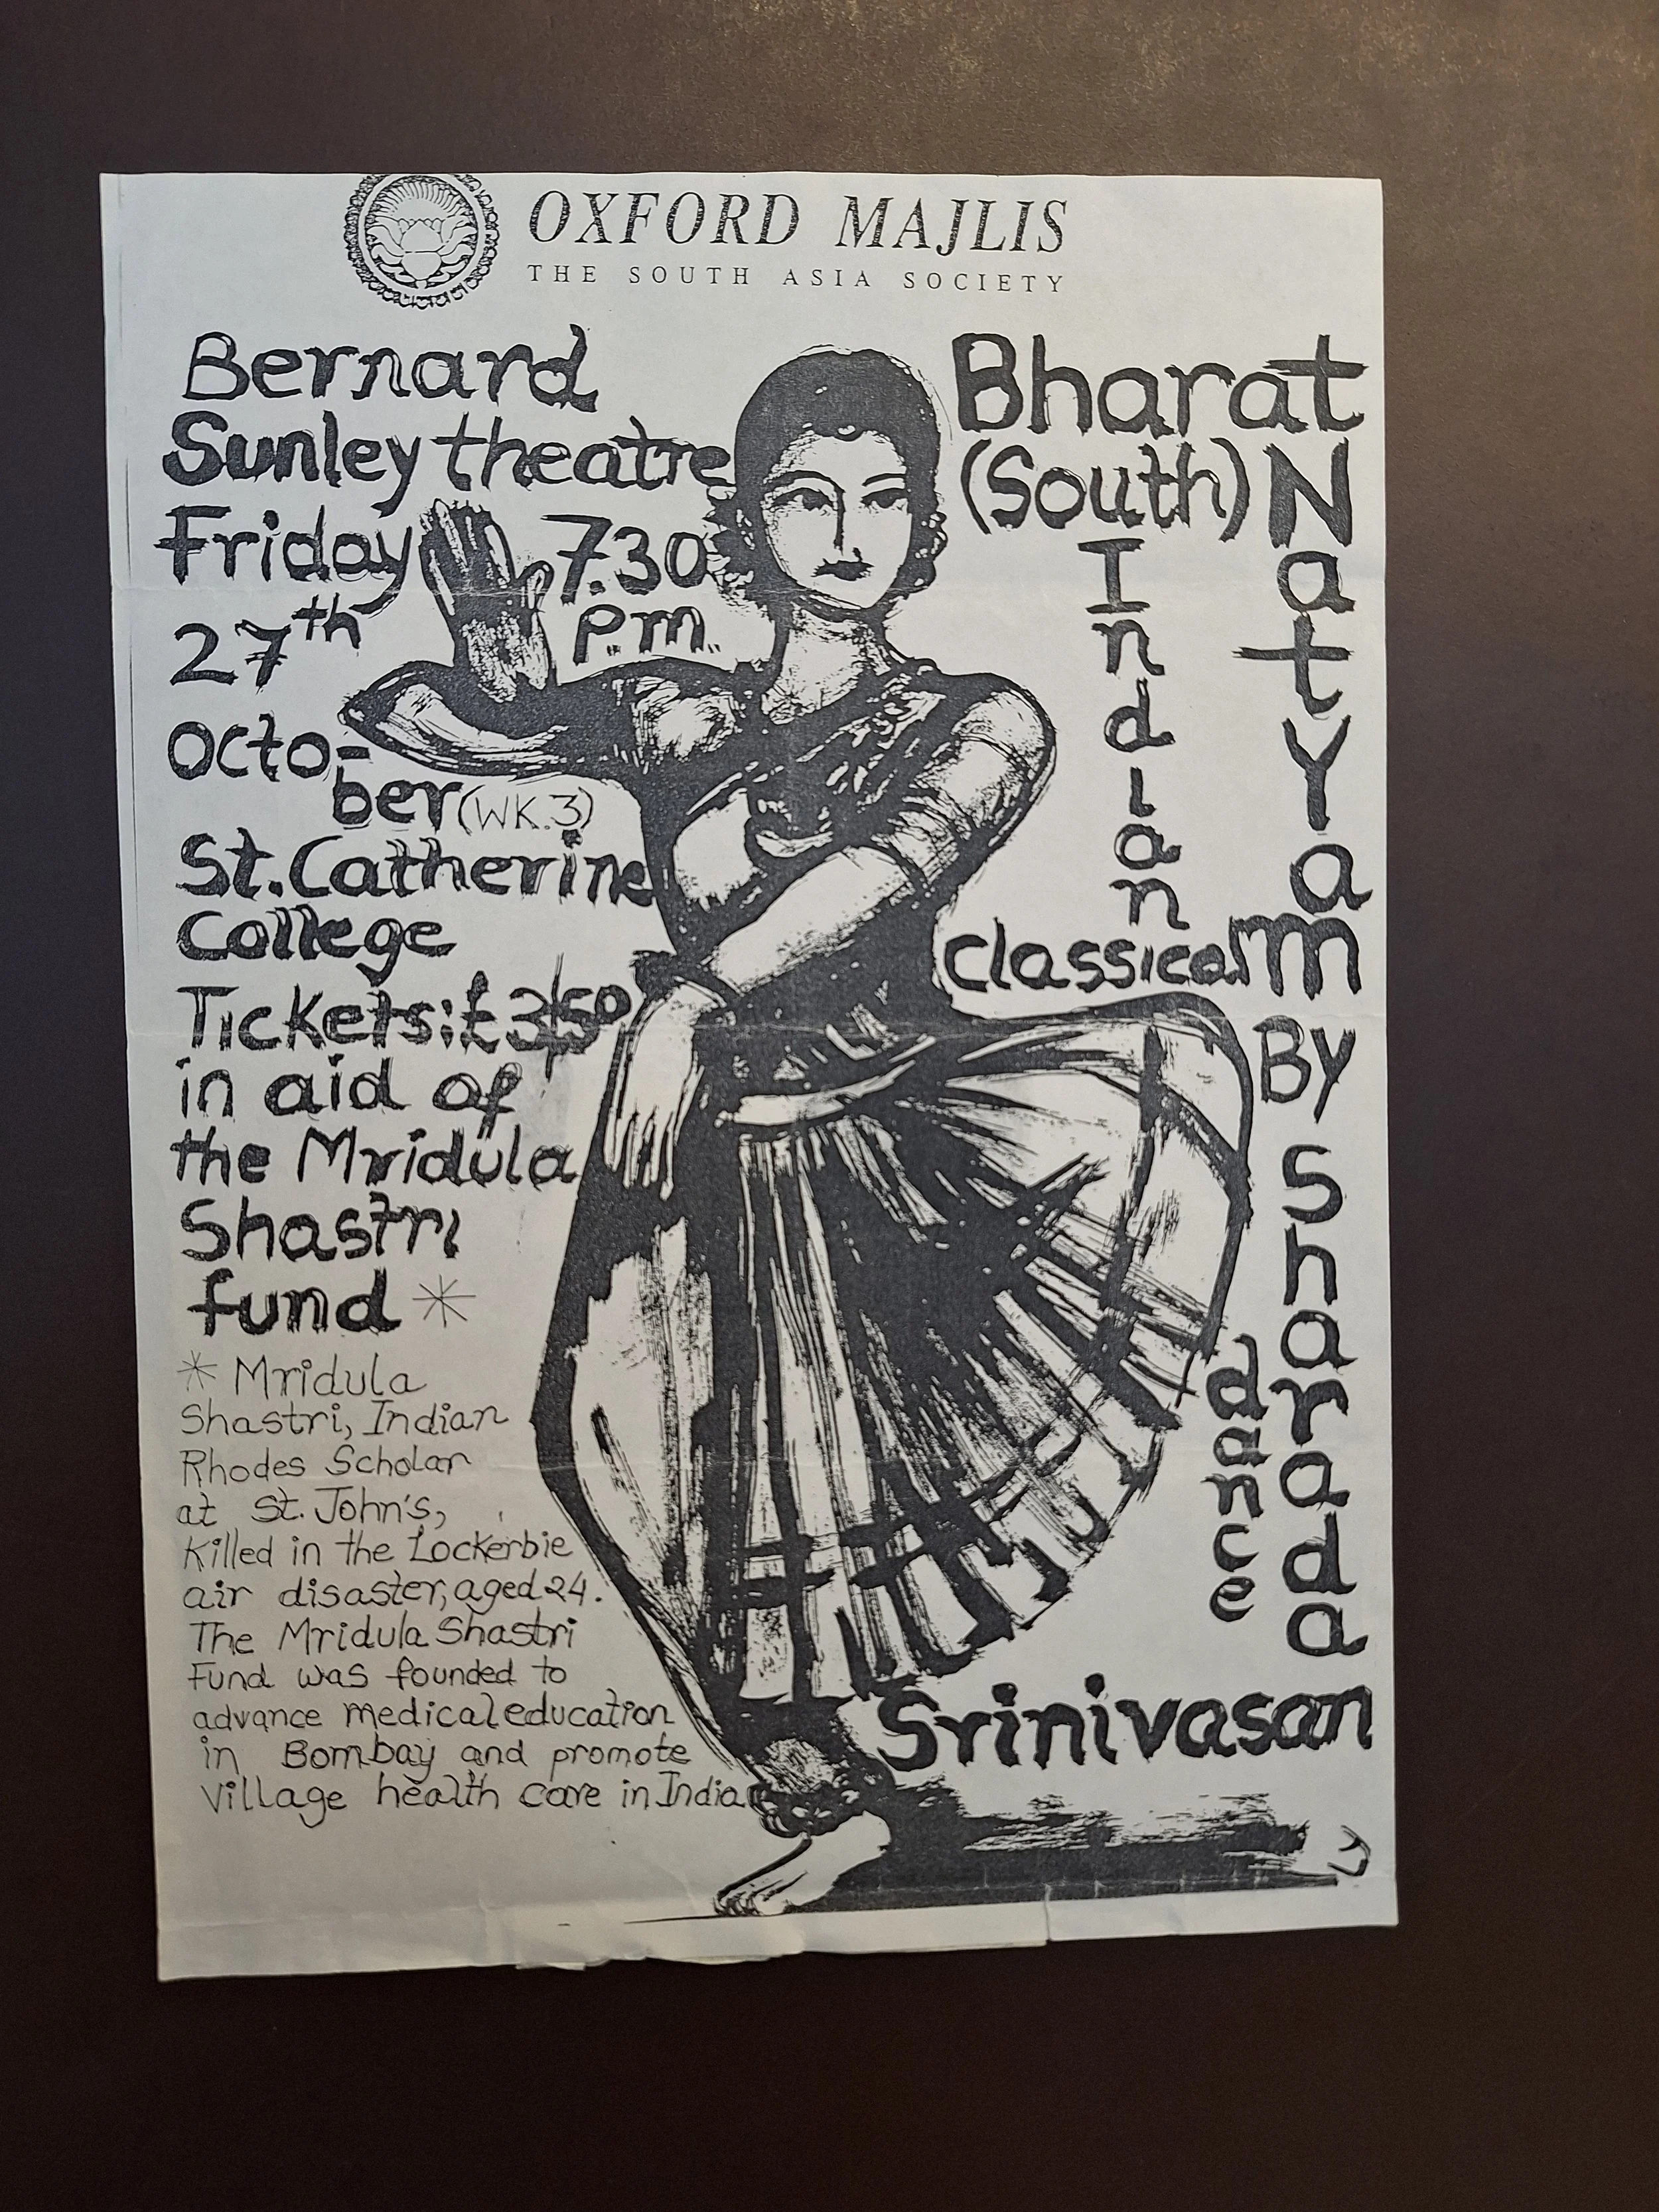 OXFORD MAJLIS
THE SOUTH ASIA SOCIETY
Bernard
Sunley theatre
Friday 7.30
27th p.m.
Octo-
ber (WK.3)
St. Catherine
College
Tickets: £3.50
in aid of
the Mridula
Shastri
fund *
* Mridula
Shastri, Indian
Rhodes Scholar
at St. John's,
Killed in the Lockerbie
air disaster, aged 24.
The Mridula Shastri
Fund was founded to
advance medical education
in Bombay and promote
Village health care in India
Bharat
NatYam
(South)
Indian
Classical
dance
By
Sharada
Srinivasan